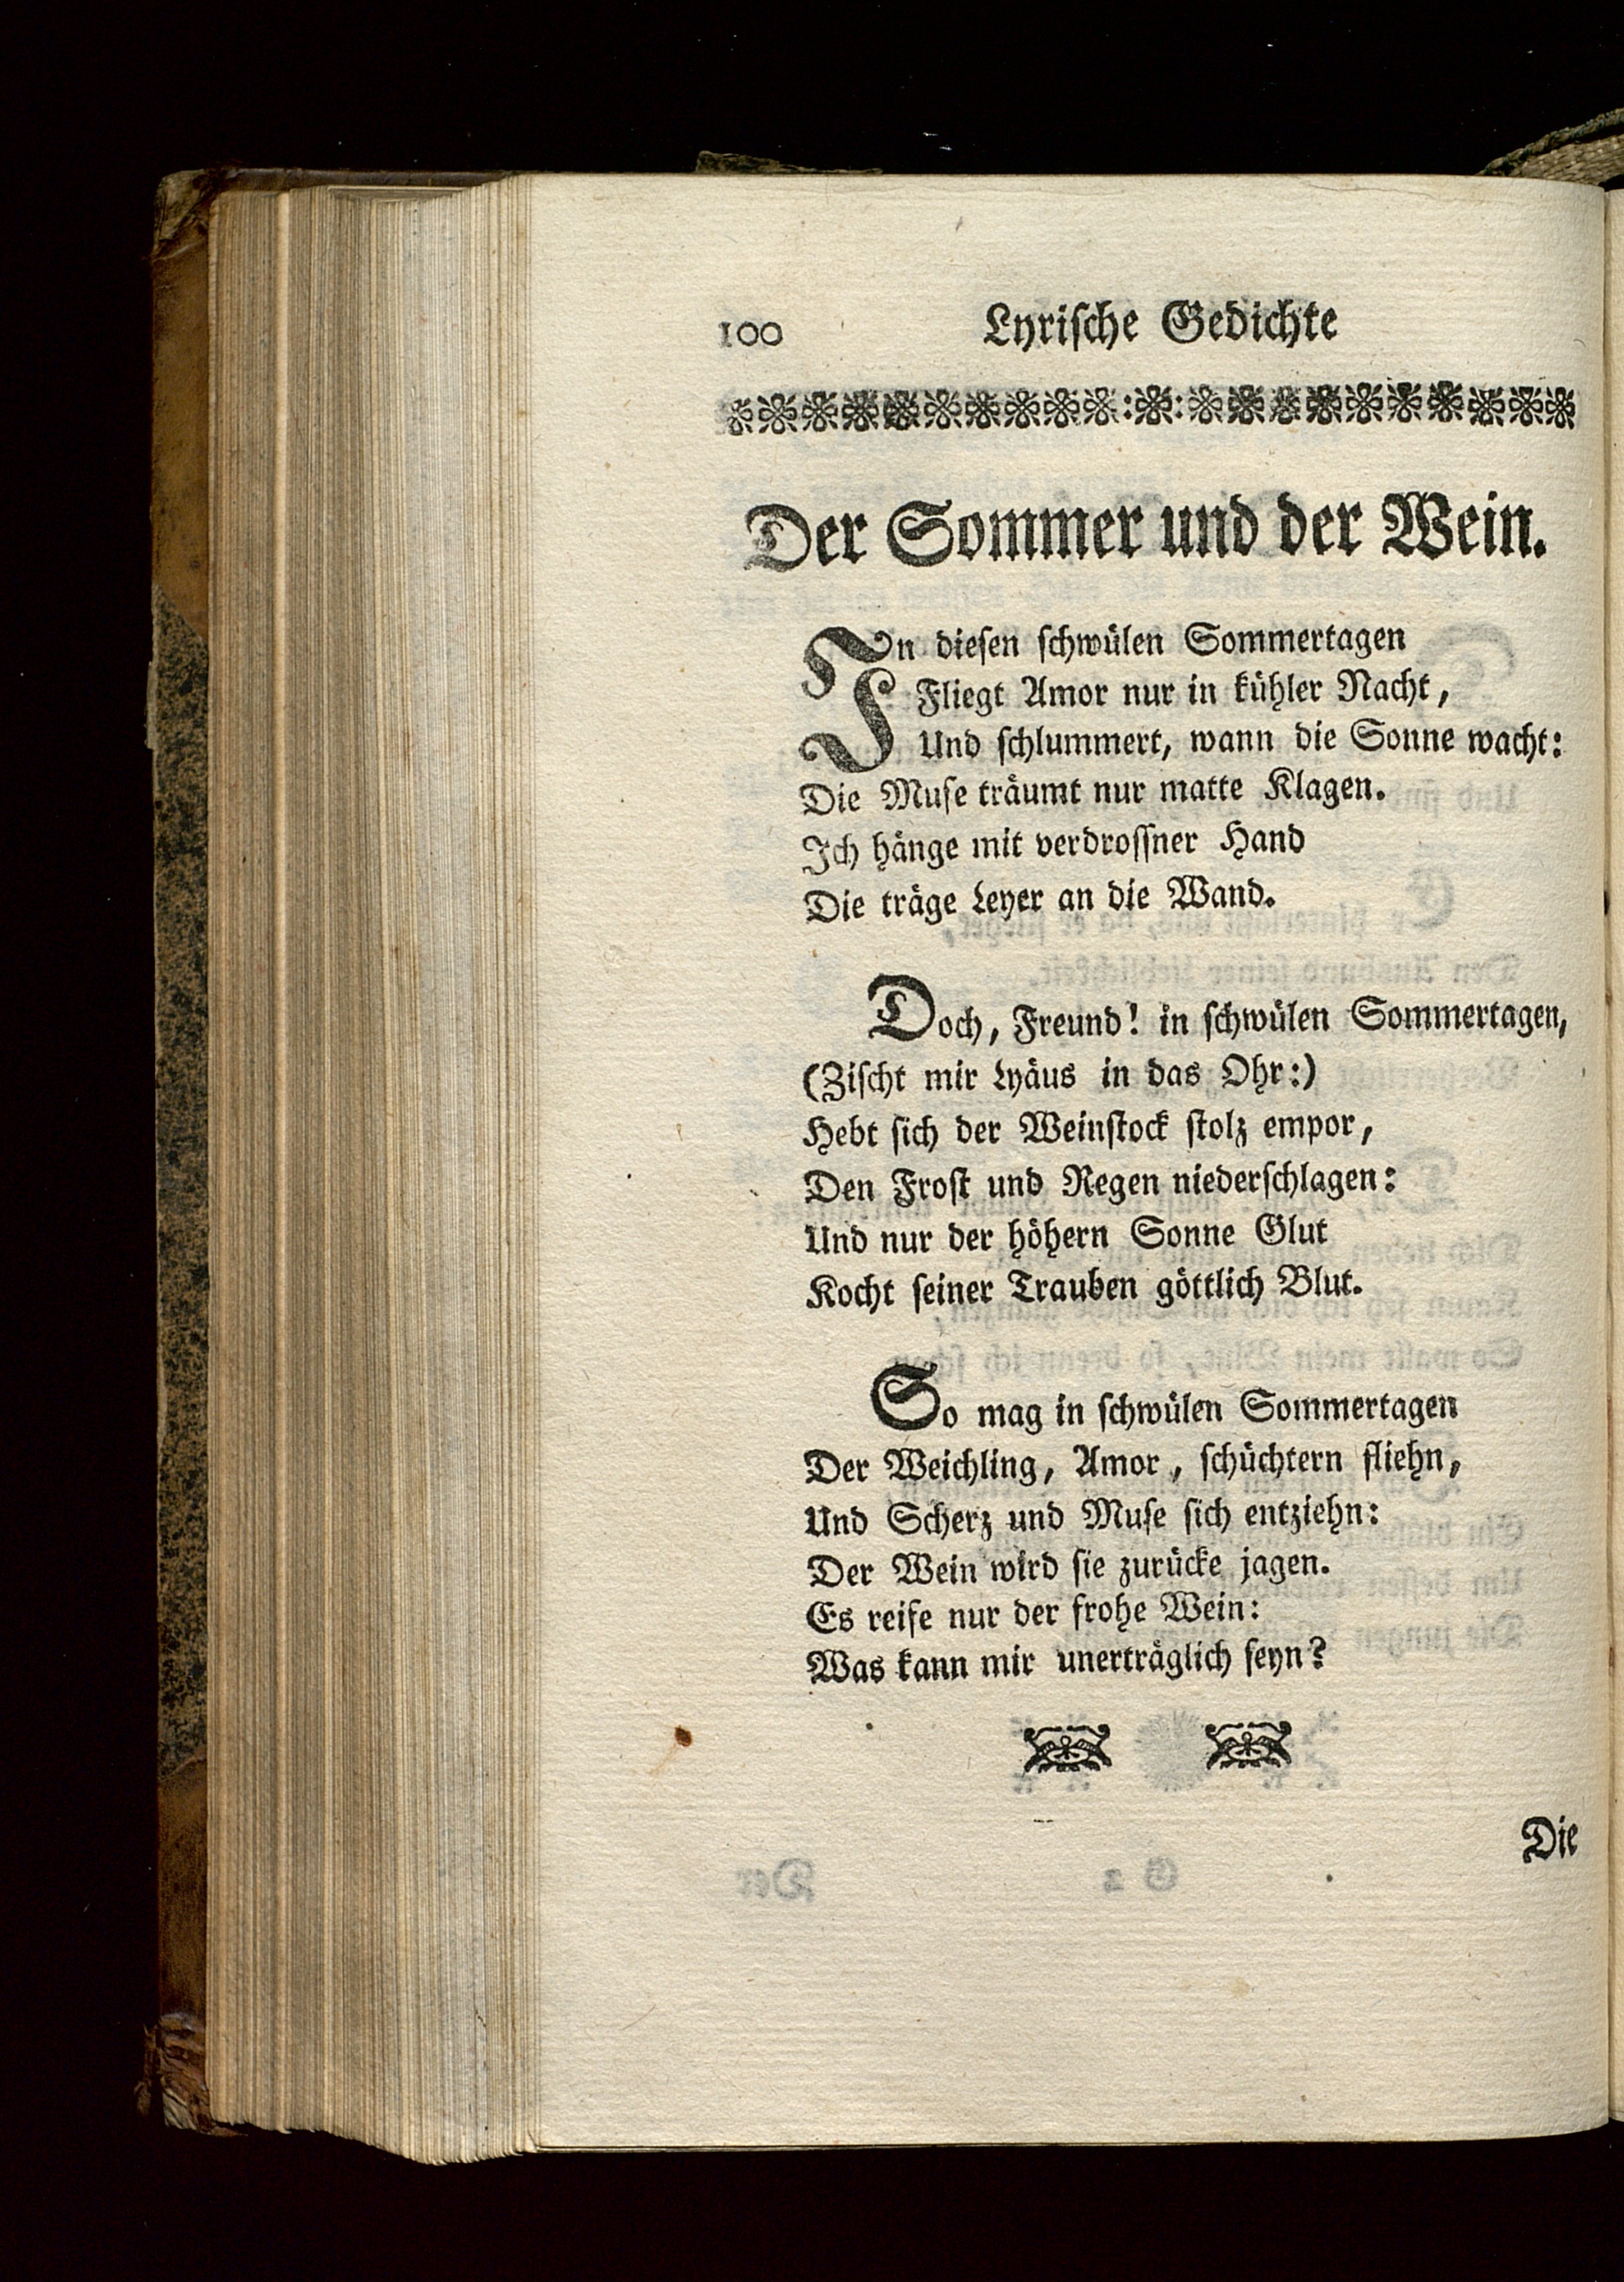 100 Lyriſche Gedichte
Der Sommer und der Wein.
In dieſen ſchwülen Sommertagen
Fliegt Amor nur in kühler Nacht,
Und ſchlummert, wann die Sonne wacht:
Die Muſe träumt nur matte Klagen.
Ich hänge mit verdroſſner Hand
Die träge Leyer an die Wand.
Doch, Freund! in ſchwülen Sommertagen,
(Ziſcht mir Lyäus in das Ohr:)
Hebt ſich der Weinſtock ſtolz empor,
Den Froſt und Regen niederſchlagen:
Und nur der höhern Sonne Glut
Kocht ſeiner Trauben göttlich Blut.
So mag in ſchwülen Sommertagen
Der Weichling, Amor, ſchüchtern fliehn,
Und Scherz und Muſe ſich entziehn:
Der Wein wird ſie zurücke jagen.
Es reife nur der frohe Wein:
Was kann mir unerträglich ſeyn?
Die